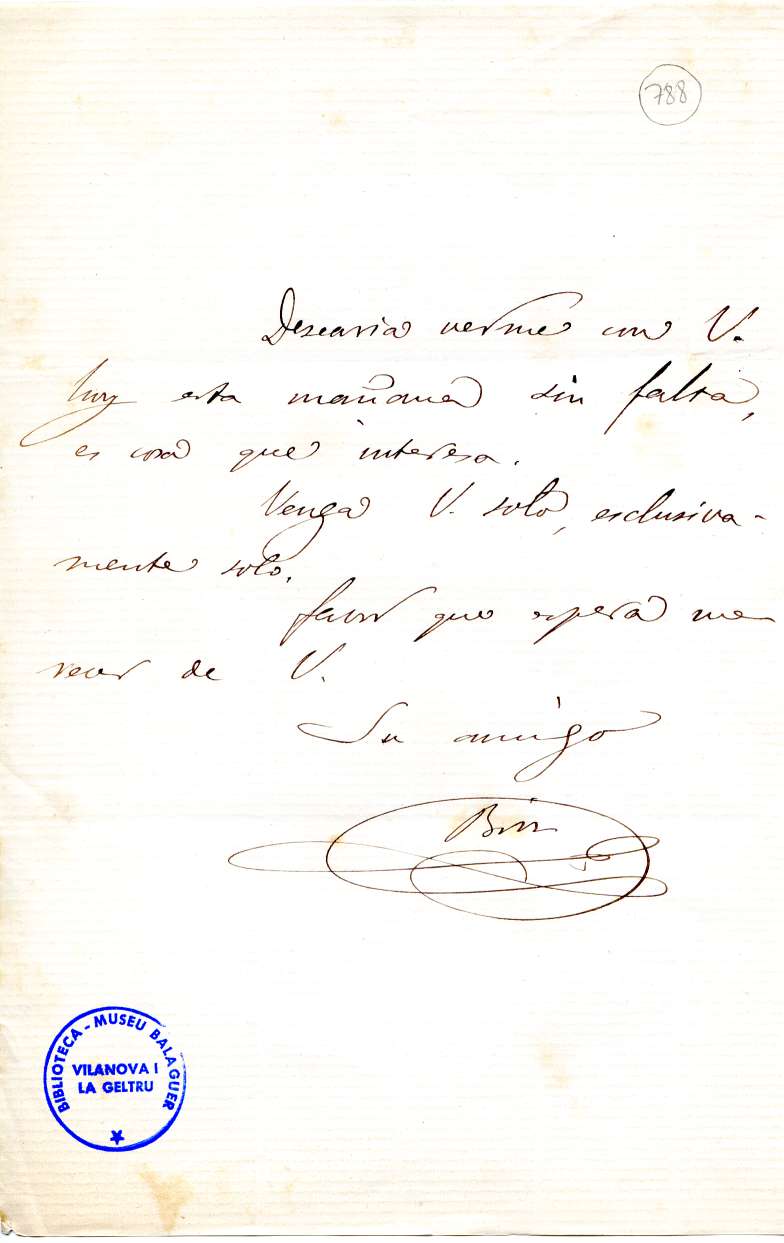 788
Desearia verme con V.
hoy esta mañana sin falta,
es cosa que interesa.
Venga V. solo, esclusiva-
mente solo.
favor que espera me-
recer de V.
Su amigo
BIBLIOTECA - MUSEU BALAGUER
VILANOVA I
LA GELTRU